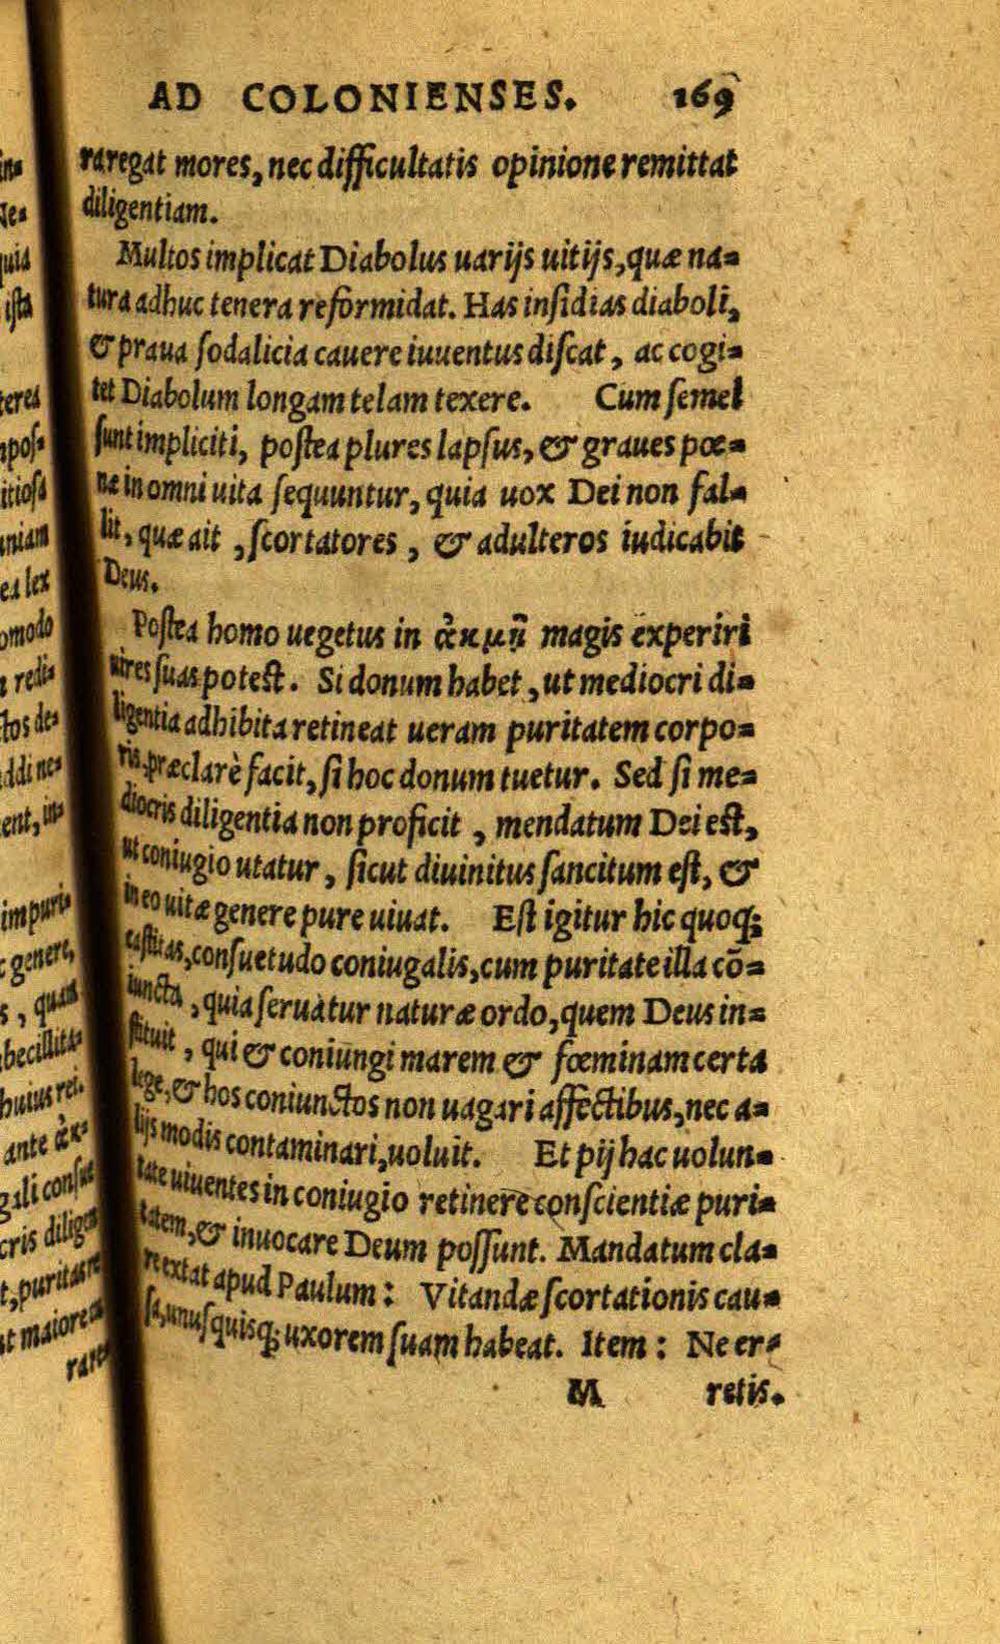 AD COLONIENSES. 169
raregat mores, nec difficultatis opinione remittat
diligentiam.
Multos implicat Diabolus uarijs uitijs, quæ na-
tura adhuc tenera reformidat. Has insidias diaboli,
& praua sodalicia cauere iuuentus discat, ac cogi-
tet Diabolum longam telam texere. Cum semel
sunt impliciti, postea plures lapsus, & graues pœ-
næ in omni uita sequuntur, quia uox Dei non fal-
lit, quæ ait, scortatores, & adulteros iudicabit
Deus.
Postea homo uegetus in ἀκμῇ magis experiri
uires suas potest. Si donum habet, ut mediocri di-
ligentia adhibita retineat ueram puritatem corpo-
ris, præclarè facit, si hoc donum tuetur. Sed si me-
diocris diligentia non proficit, mendatum Dei est,
ut coniugio utatur, sicut diuinitus sancitum est, &
in eo uitæ genere pure uiuat. Est igitur hic quoq;
castitas, consuetudo coniugalis, cum puritate illa cō-
iuncta, quia seruatur naturæ ordo, quem Deus in-
stituit, qui & coniungi marem & fœminam certa
lege, & hos coniunctos non uagari affectibus, nec a-
lijs modis contaminari, uoluit. Et pij hac uolun-
tate uiuentes in coniugio retinere conscientiæ puri-
tatem, & inuocare Deum possunt. Mandatum cla-
re extat apud Paulum: Vitandæ scortationis cau-
sa, unusquisq; uxorem suam habeat. Item: Ne er-
M retis.
quia
ista
teres
itiosa
niam
ea lex
omodo
redi-
tos de-
ddi nes
ent, in-
impuri-
genere,
s, quam
becillita-
huius rei.
ante ἀκ-
gali consue
cris diligen
t, puritate
rare